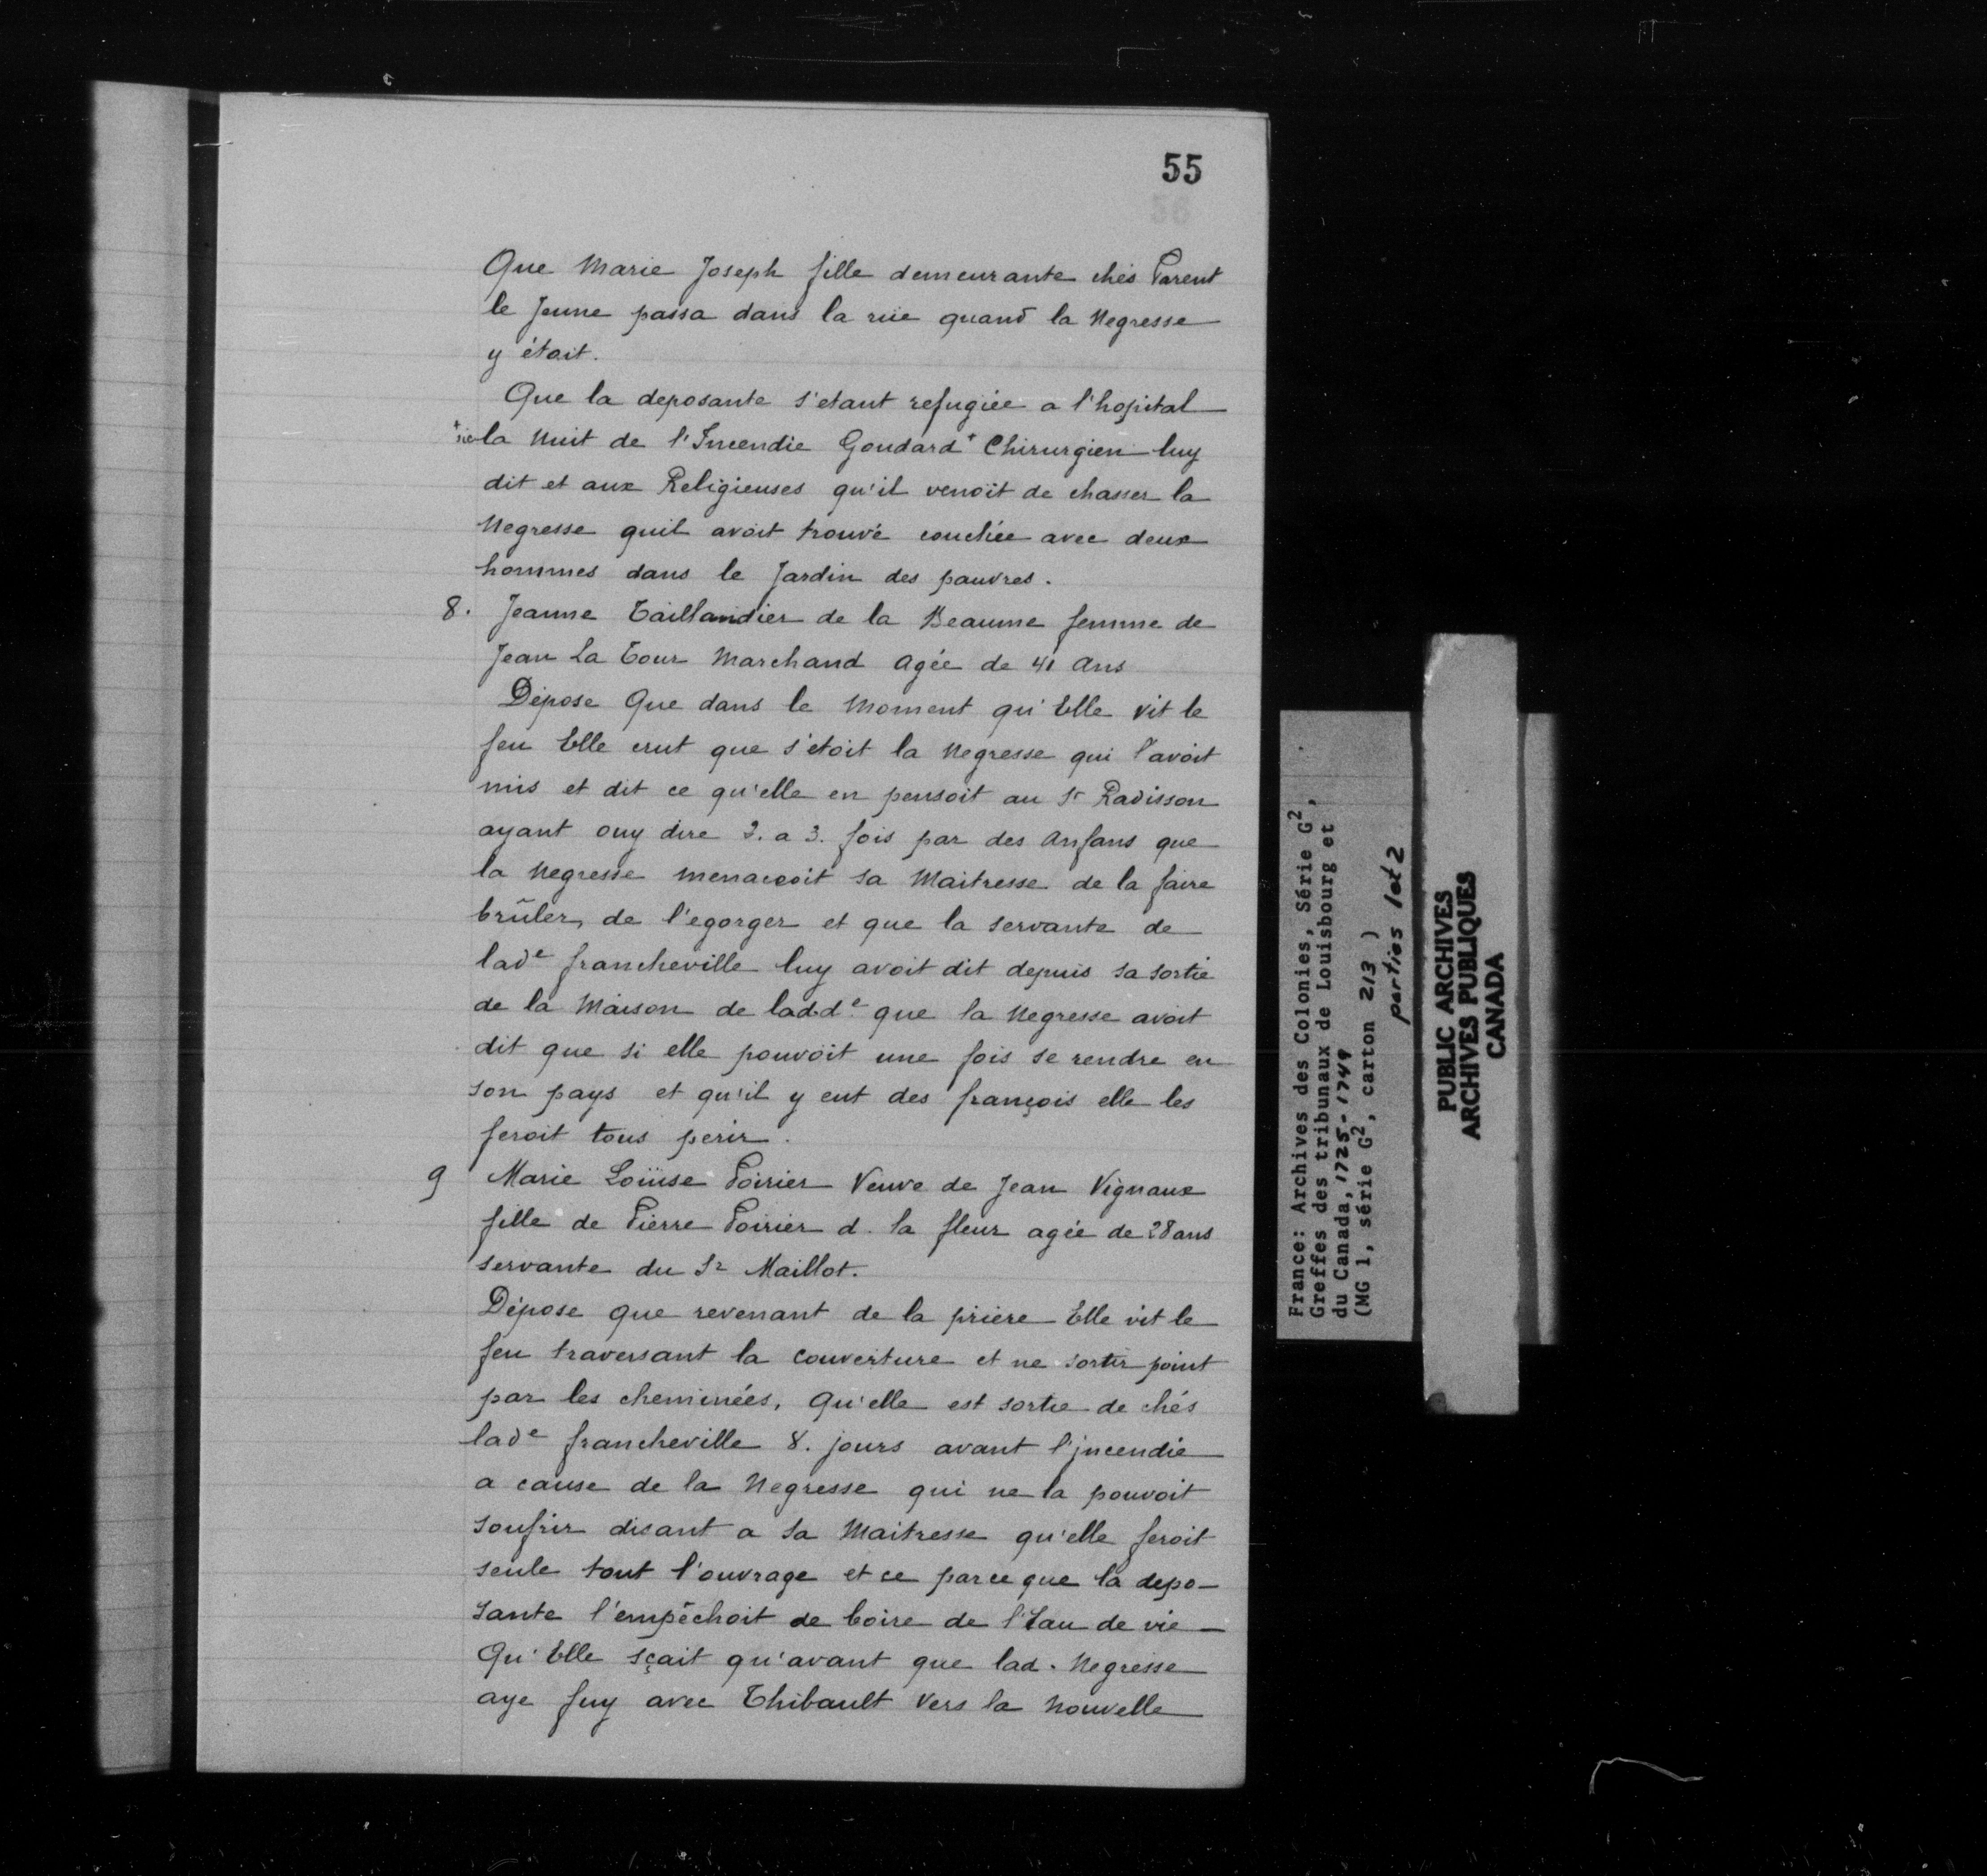 55
56
Que Marie Joseph fille demeurante chés Parent
le Jeune passa dans la rüe quand la Negresse
y était.
Que la deposante s'etant refugiée a l'hopital
+sic la Nuit de l'Incendie Goudard+ Chirurgien luy
dit et aux Religieuses qu'il venoit de chasser la
Negresse quil avoit trouvé couchée avec deux
hommes dans le Jardin des pauvres.
8. Jeanne Taillandier de la Beaume femme de
Jean La Tour Marchand agée de 41 ans
Dépose Que dans le Moment qu'Elle vit le
feu Elle crut que s'etoit la Negresse qui l'avoit
mis et dit ce qu'elle en pensoit au Sr Radisson
ayant ouy dire 2. a 3. fois par des anfans que
la Negresse menaccoit sa Maitresse de la faire
brûler, de l'egorger et que la servante de
lade francheville luy avoit dit depuis sa sortie
de la Maison de ladde que la Negresse avoit
dit que si elle pouvoit une fois se rendre en
son pays et qu'il y eut des françois elle les
feroit tous perir.
9 Marie Loüise Poirier Veuve de Jean Vignaux
fille de Pierre Poirier d. la fleur agée de 28 ans
servante du Sr Maillot.
Dépose que revenant de la priere Elle vit le
feu traversant la couverture et ne sortir point
par les cheminées, Qu'elle est sortie de chés
lade francheville 8. jours avant l'jncendie
a cause de la Negresse qui ne la pouvoit
soufrir disant a sa Maitresse qu'elle feroit
seule tout l'ouvrage et ce parce que la depo-
sante l'empêchoit de boire de l'Eau de vie -
Qu'Elle sçait qu'avant que lad. Negresse
aye fuy avec Thibault vers la Nouvelle
France: Archives des Colonies, Série G2,
Greffes des tribunaux de Louisbourg et
du Canada, 1725-1749
(MG 1, série G2, carton 213 )
parties 1et2
PUBLIC ARCHIVES
ARCHIVES PUBLIQUES
CANADA